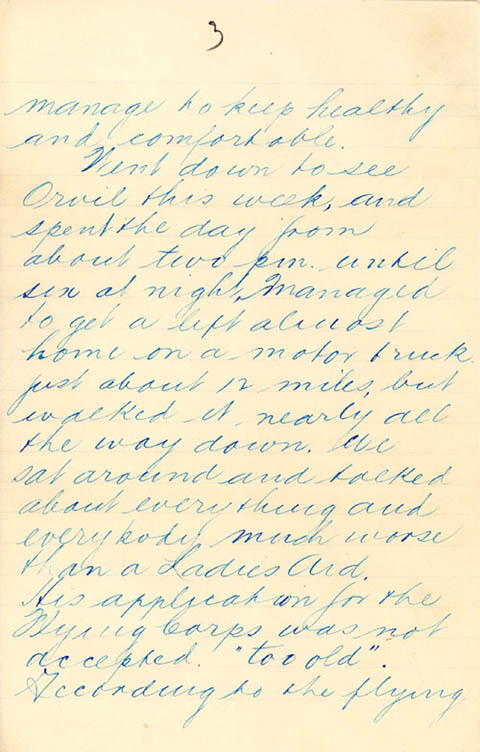 3
manage to keep healthy
and comfortable.
Went down to see
Orvil this week, and
spent the day from
about two p.m. until
six at night, Managed
to get a lift almost
home on a motor truck.
just about 12 miles, but
walked it nearly all
the way down. We
sat around and talked
about everything and
everybody much worse
than a Ladies Aid.
His application for the
Flying Corps was not
accepted. "too old".
According to the flying